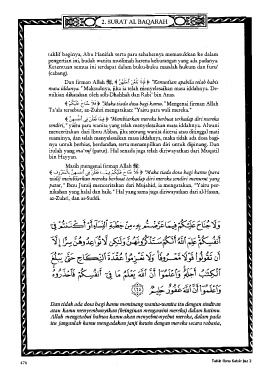 2. SURAT AL BAQARAH
taklif baginya, Abu Hanifah serta para sahabatnya memasukkan ke dalam
pengertian ini, budak wanita muslimah karena kekurangan yang ada padanya.
Ketentuan semua ini terdapat dalam buku-buku masalah hukum dan furu'
(cabang).
Dan firman Allah ﴿ فَإِذَا بَلَغْنَ أَجَلَهُنَّ ﴾ "Kemudian apabila telah habis
masa iddanya." Maksudnya, jika ia telah menyelesaikan masa iddahnya. De-
mikian dikatakan oleh adh-Dhahhak dan Rabi' bin Anas.
﴿ فَلَا جُنَاحَ عَلَيْكُمْ ﴾ "Maka tiada dosa bagi kamu." Mengenai firman Allah
Ta'ala tersebut, az-Zuhri mengatakan: "Yaitu para wali mereka."
﴿ فِيمَا فَعَلْنَ فِي أَنفُسِهِنَّ ﴾ "Membiarkan mereka berbuat terhadap diri mereka
sendiri," yaitu para wanita yang telah menyelesaikan masa iddahnya. Al-Aufi
menceritakan dari Ibnu Abbas, jika seorang wanita dicerai atau ditinggal mati
suaminya, dan telah menyelesaikan masa iddahnya, maka tidak ada dosa bagi-
nya untuk berhias, berdandan, serta menampilkan diri untuk dipinang. Dan
itulah yang ma'ruf (patut). Hal senada juga telah diriwayatkan dari Muqatil
bin Hayyan.
Masih mengenai firman Allah
﴿ فَلَا جُنَاحَ عَلَيْكُمْ فِيمَا فَعَلْنَ فِي أَنفُسِهِنَّ بِالْمَعْرُوفِ ﴾ "Maka tiada dosa bagi kamu (para
wali) membiarkan mereka berbuat terhadap diri mereka sendiri menurut yang
patut," Ibnu Juraij menceritakan dari Mujahid, ia mengatakan, "Yaitu per-
nikahan yang halal dan baik." Hal yang sama juga diriwayatkan dari al-Hasan,
az-Zuhri, dan as-Suddi.
وَلَا جُنَاحَ عَلَيْكُمْ فِيمَا عَرَّضْتُم بِهِ مِنْ خِطْبَةِ النِّسَاءِ أَوْ أَكْنَنتُمْ فِي
أَنفُسِكُمْ عَلِمَ اللَّهُ أَنَّكُمْ سَتَذْكُرُونَهُنَّ وَلَٰكِن لَّا تُوَاعِدُوهُنَّ سِرًّا إِلَّا
أَن تَقُولُوا قَوْلًا مَّعْرُوفًا وَلَا تَعْزِمُوا عُقْدَةَ النِّكَاحِ حَتَّىٰ يَبْلُغَ
الْكِتَابُ أَجَلَهُ وَاعْلَمُوا أَنَّ اللَّهَ يَعْلَمُ مَا فِي أَنفُسِكُمْ فَاحْذَرُوهُ
وَاعْلَمُوا أَنَّ اللَّهَ غَفُورٌ حَلِيمٌ ﴿٢٣٥﴾
Dan tidak ada dosa bagi kamu meminang wanita-wanita itu dengan sindiran
atau kamu menyembunyikan (keinginan mengawini mereka) dalam hatimu.
Allah mengetahui bahwa kamu akan menyebut-nyebut mereka, dalam pada
itu janganlah kamu mengadakan janji kawin dengan mereka secara rahasia,
476
Tafsir Ibnu Katsir Juz 2